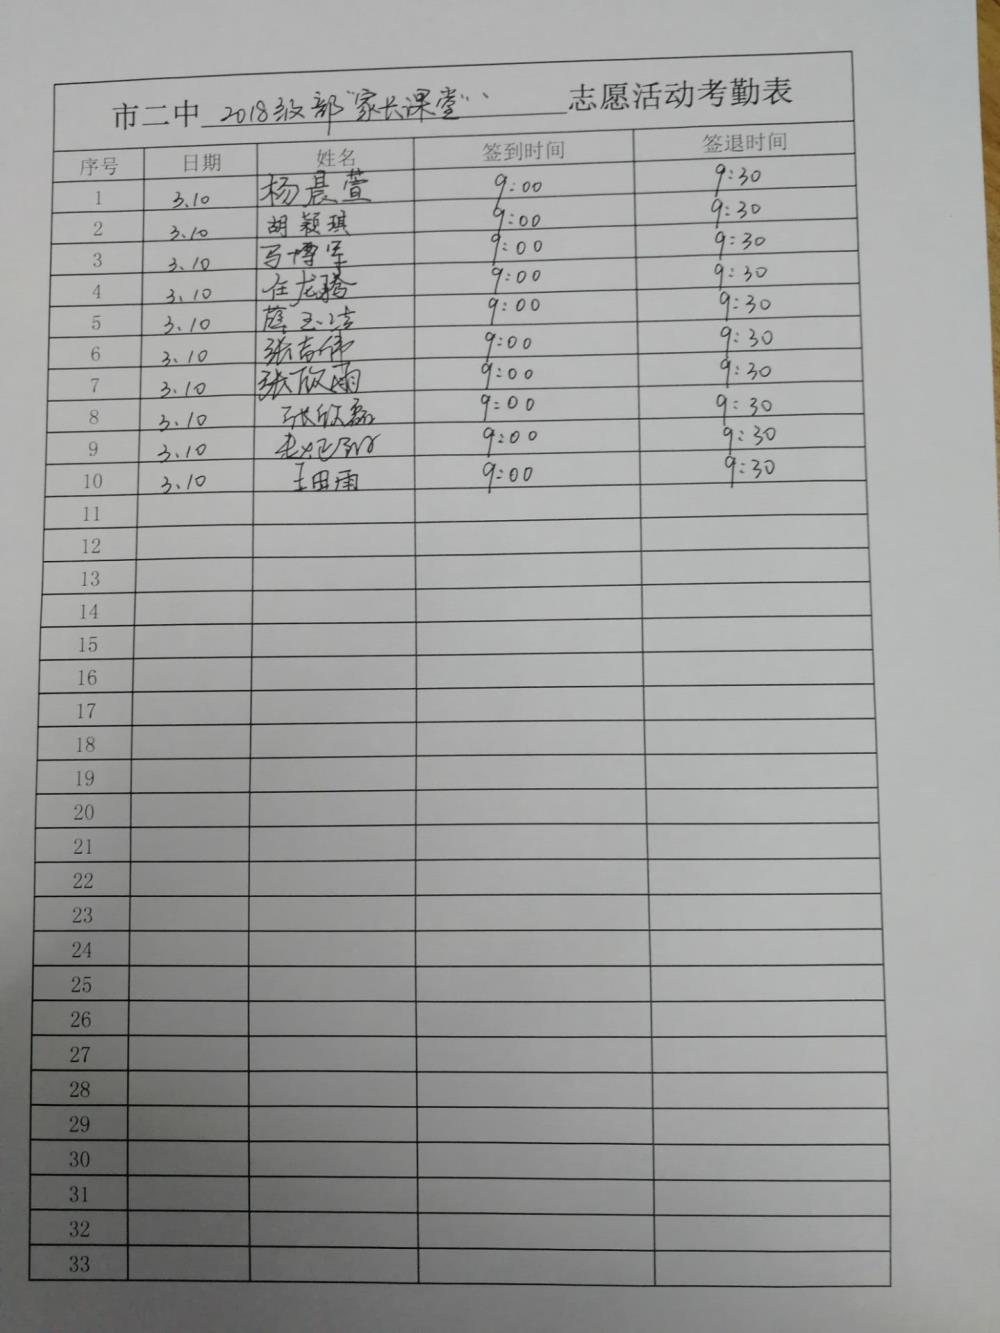 市二中 2018级部"家长课堂" 志愿活动考勤表
序号 日期 姓名 签到时间 签退时间
1 3.10 杨晨萱 9:00 9:30
2 3.10 胡颖琪 9:00 9:30
3 3.10 马博军 9:00 9:30
4 3.10 任龙腾 9:00 9:30
5 3.10 薛玉洁 9:00 9:30
6 3.10 张吉伟 9:00 9:30
7 3.10 张欣雨 9:00 9:30
8 3.10 张欣磊 9:00 9:30
9 3.10 9:00 9:30
10 3.10 王田雨 9:00 9:30
11
12
13
14
15
16
17
18
19
20
21
22
23
24
25
26
27
28
29
30
31
32
33